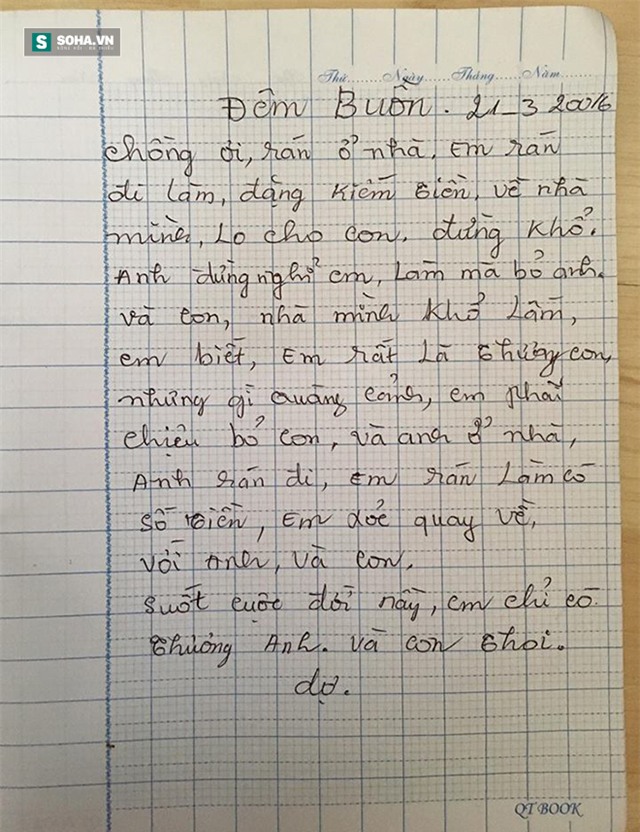 SOHA.VN
Thứ........Ngày........Tháng........Năm........
Đêm Buồn. 21_3 20016
chồng ơi, rán ở nhà, Em rán
đi làm, dặng kiếm tiền, về nhà
mình, Lo cho con. đừng khổ.
Anh đừng nghỉ em, Làm mà bỏ anh.
và con, nhà mình khổ Lắm,
em biết, Em rất Là thương con,
nhưng gì quàng cảnh, em phải
chiệu bỏ con, và anh ở nhà,
Anh rán đi, Em rán Làm có
số tiền, Em đoẻ quay về,
với Anh, và con.
Suốt cuộc đời này, em chỉ có
thương Anh. và con thoi.
dợ.
QT BOOK